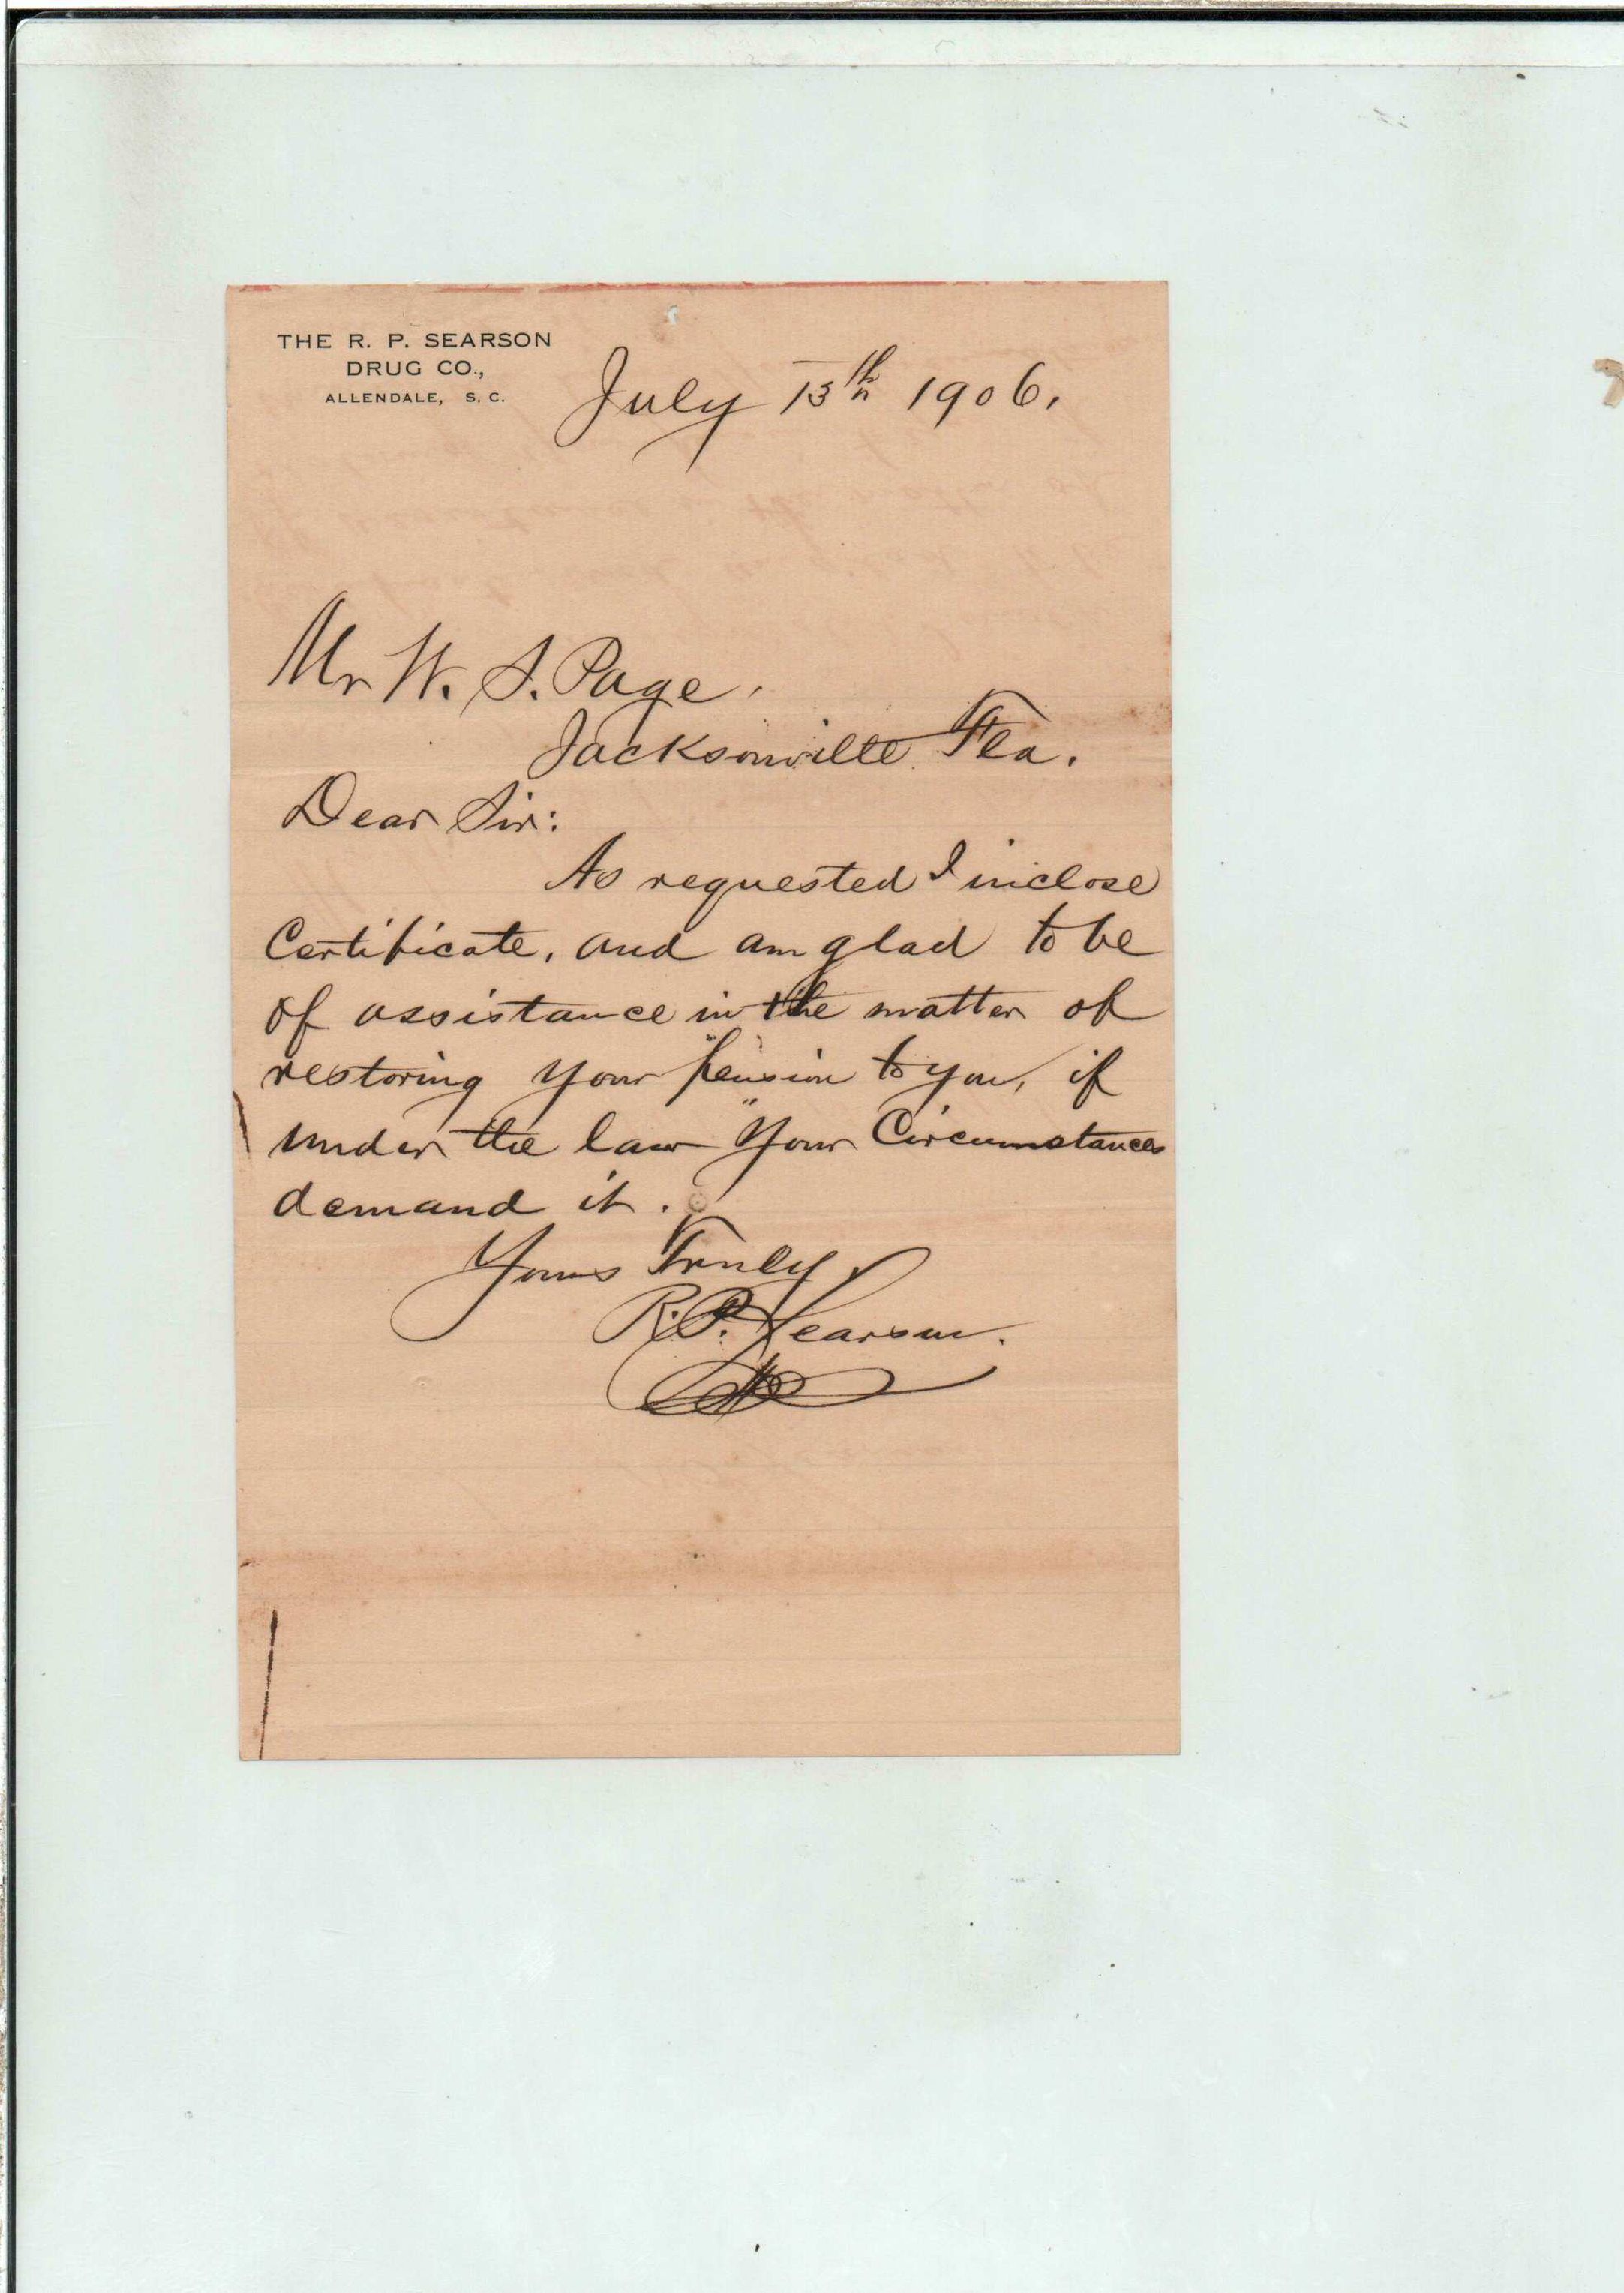 THE R. P. SEARSON
DRUG CO.,
ALLENDALE, S. C.
July 13th 1906.
Mr W. S. Page,
Jacksonville Fla.
Dear Sir:
As requested I inclose
Certificate, and am glad to be
of assistance in the matter of
restoring your "pension" to you, if
under the law your Circumstances
demand it.
Yours Truly,
R. P. Searson.